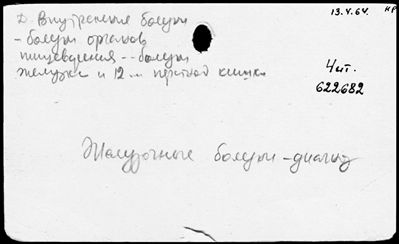 Д. Внутренние болезни
- болезни органов
пищеварения -- болезни
желудка и 12-и перстной кишки
13.4.64.
КР
Чит.
622682
Желудочные болезни - диагноз